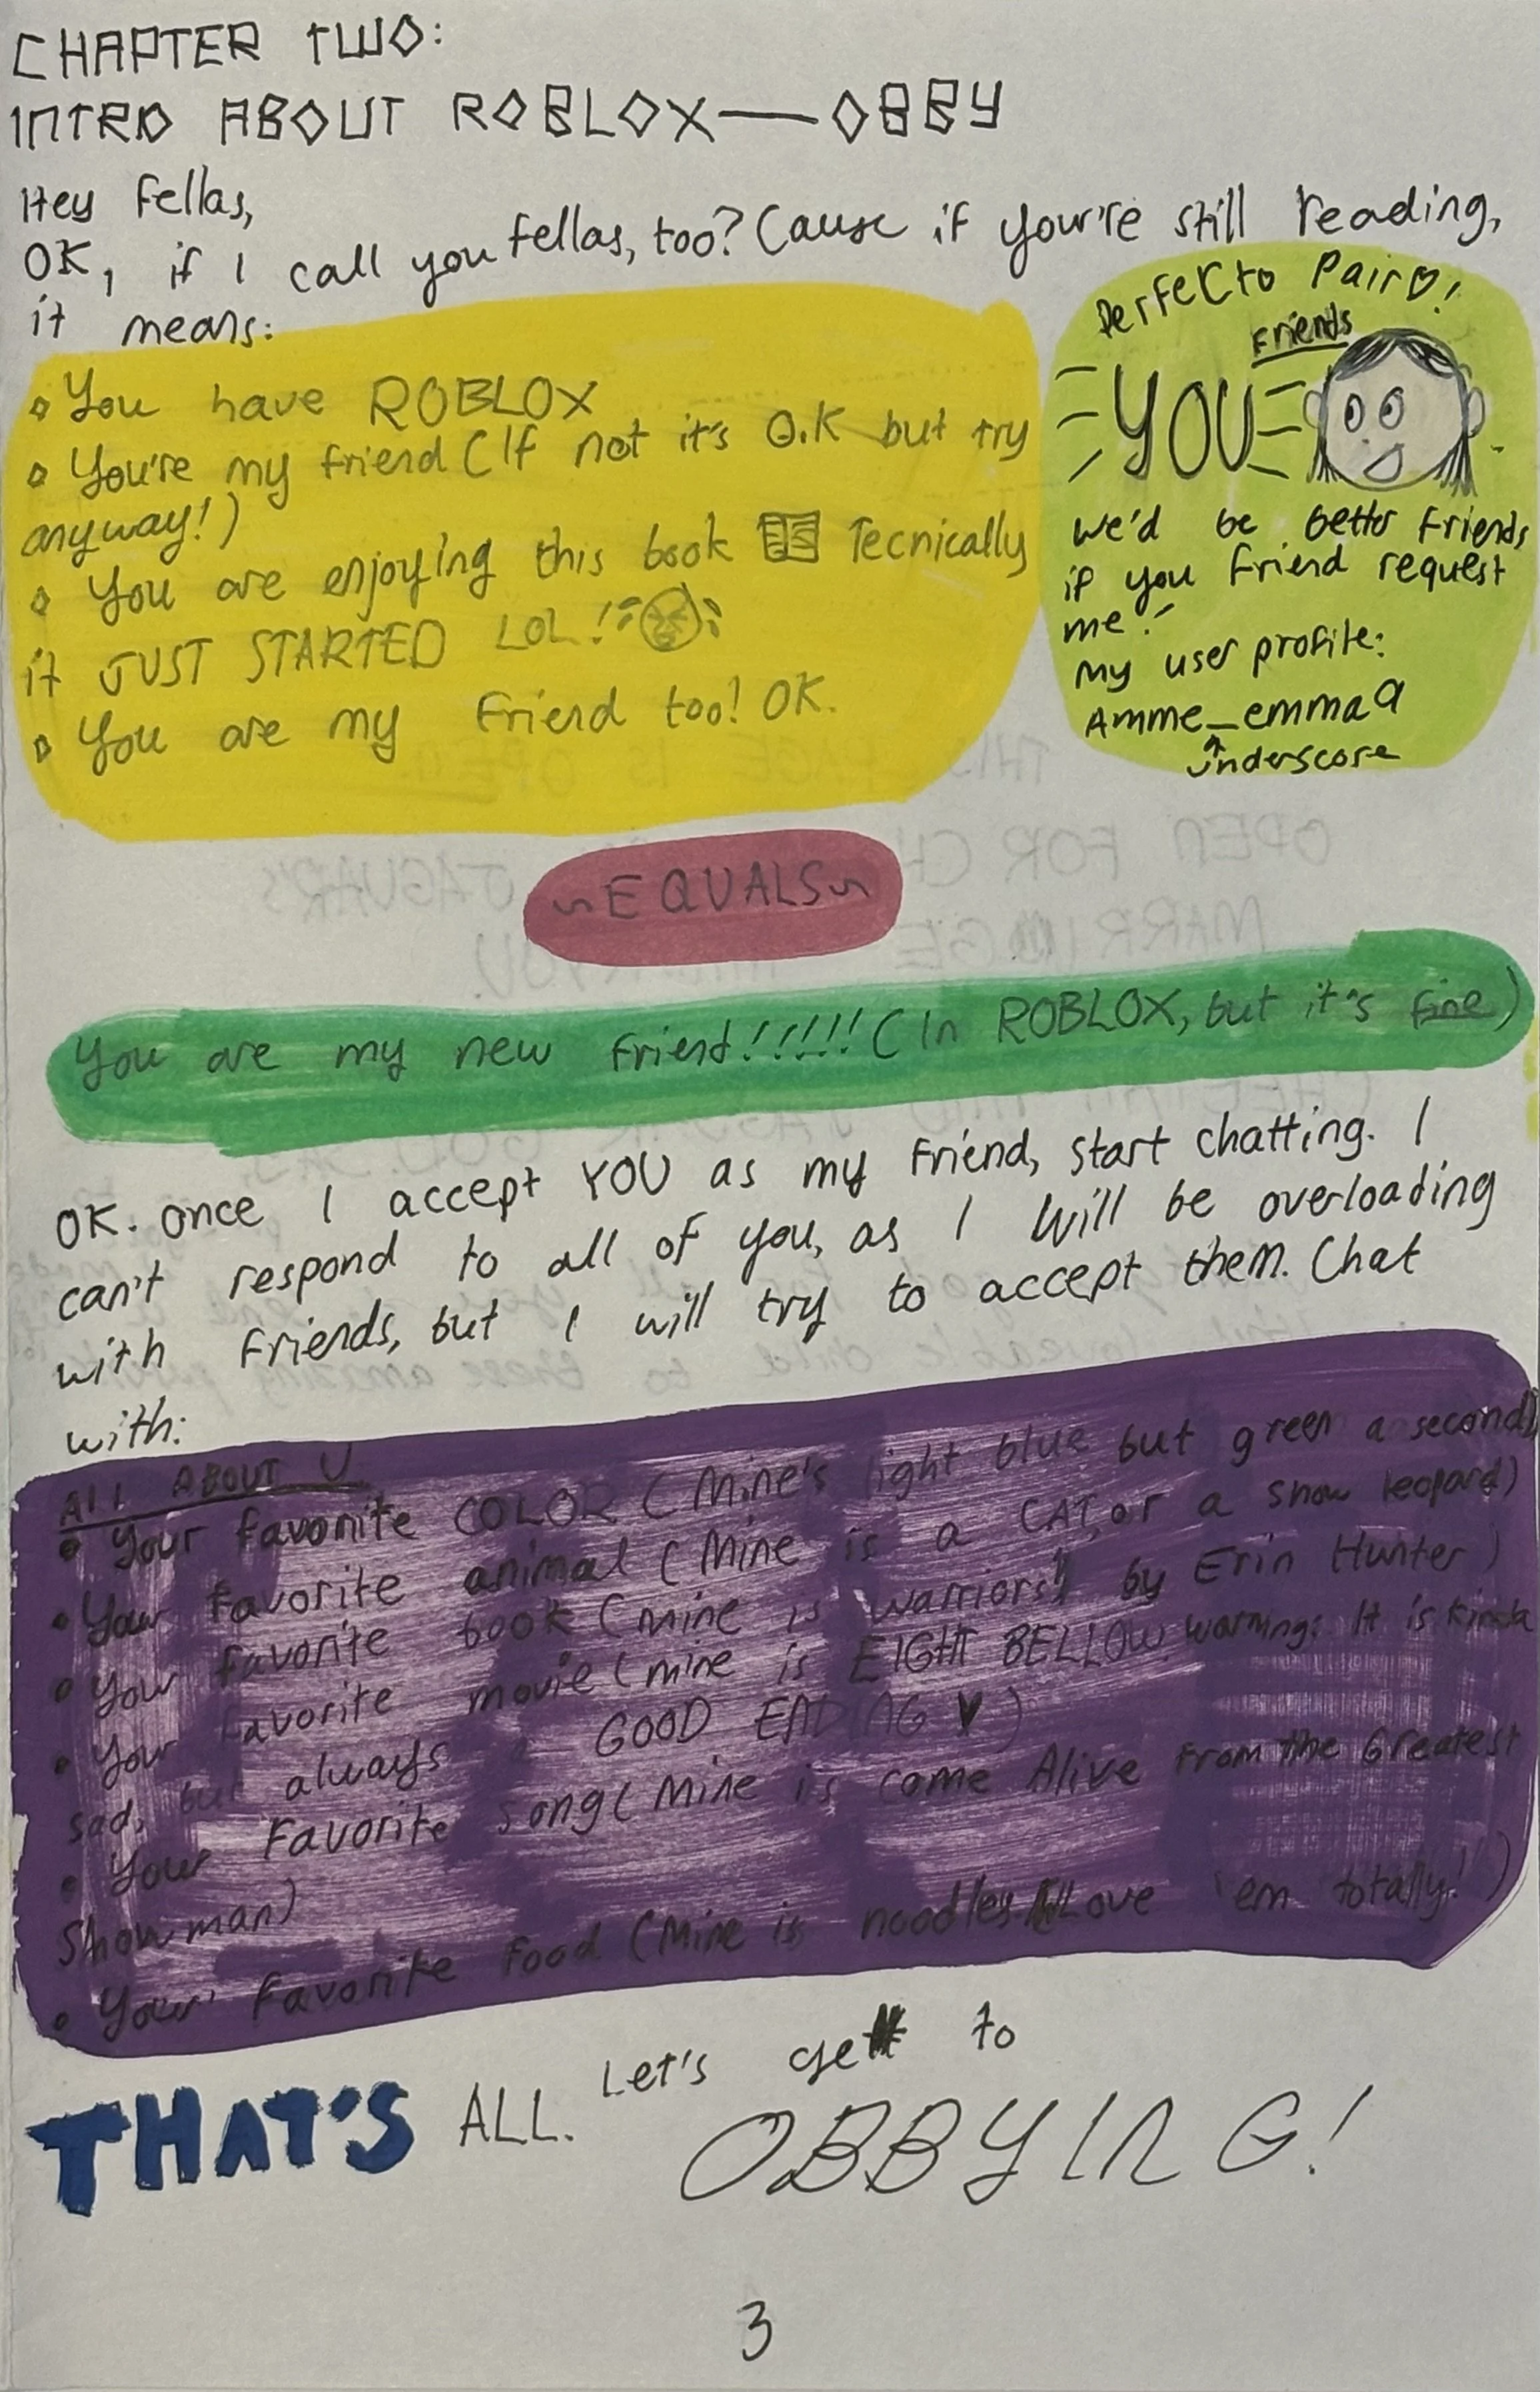 CHAPTER TWO:
INTRO ABOUT ROBLOX—OBBY
Hey Fellas,
OK, if I call you fellas, too? Cause if your're still reading,
it means:
You have ROBLOX
You're my friend (If not it's O.K but try
anyway!)
You are enjoying this book Tecnically
it JUST STARTED LOL!
You are my Friend too! OK.
Perfecto Pair!
Friends
YOU
We'd be better Friends
if you Friend request
me!
My user profile:
Amme_emma9
underscore
~EQUALS~
You are my new friend!!!!!! (In ROBLOX, but it's fine)
OK. Once I accept YOU as my Friend, start chatting. I
can't respond to all of you, as I Will be overloading
with Friends, but I will try to accept them. Chat
with:
All ABOUT U
• Your favorite COLOR (Mine's light blue but green a second)
• Your favorite animal (Mine is a CAT, or a snow leopard)
• Your favorite book (Mine is "Warriors" by Erin Hunter)
• Your favorite movie (mine is EIGHT BELLOW. Warning: It is kinda
sad, but always a GOOD ENDING ♥)
• Your Favorite song (Mine is Come Alive From the Greatest
Showman)
• Your favorite food (Mine is noodles Love 'em totally!)
THAT'S ALL. Let's get to
OBBYING!
3